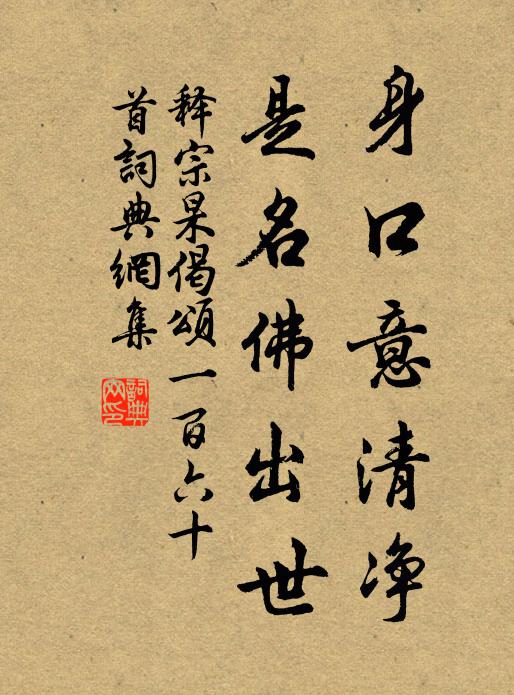 身口意清净
是名佛出世
释宗杲偈颂一百六十
首詞典網集
詞典網印